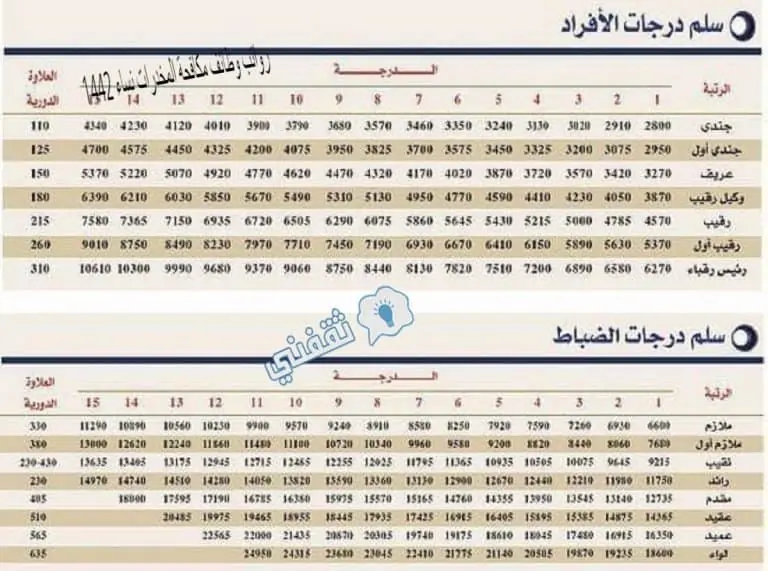 سلم درجات الأفراد
رواتب وظائف مكافحة المخدرات نساء 1442
الرتبة الدرجة العلاوة الدورية
1 2 3 4 5 6 7 8 9 10 11 12 13 14 15
جندي 2800 2910 3020 3130 3240 3350 3460 3570 3680 3790 3900 4010 4120 4230 4340 110
جندي أول 2950 3075 3200 3325 3450 3575 3700 3825 3950 4075 4200 4325 4450 4575 4700 125
عريف 3270 3420 3570 3720 3870 4020 4170 4320 4470 4620 4770 4920 5070 5220 5370 150
وكيل رقيب 3870 4050 4230 4410 4590 4770 4950 5130 5310 5490 5670 5850 6030 6210 6390 180
رقيب 4570 4785 5000 5215 5430 5645 5860 6075 6290 6505 6720 6935 7150 7365 7580 215
رقيب أول 5370 5630 5890 6150 6410 6670 6930 7190 7450 7710 7970 8230 8490 8750 9010 260
رئيس رقباء 6270 6580 6890 7200 7510 7820 8130 8440 8750 9060 9370 9680 9990 10300 10610 310
ثقفني
سلم درجات الضباط
الرتبة الدرجة العلاوة الدورية
1 2 3 4 5 6 7 8 9 10 11 12 13 14 15
ملازم 6600 6930 7260 7590 7920 8250 8580 8910 9240 9570 9900 10230 10560 10890 11290 330
ملازم أول 7680 8060 8440 8820 9200 9580 9960 10340 10720 11100 11480 11860 12240 12620 13000 380
نقيب 9215 9645 10075 10505 10935 11365 11795 12025 12255 12485 12715 12945 13175 13405 13635 230-430
رائد 11750 11980 12210 12440 12670 12900 13130 13360 13590 13820 14050 14280 14510 14740 14970 230
مقدم 12735 13140 13545 13950 14355 14760 15165 15570 15975 16380 16785 17190 17595 18000 405
عقيد 14365 14875 15385 15895 16405 16915 17425 17935 18445 18955 19465 19975 20485 510
عميد 16350 16915 17480 18045 18610 19175 19740 20305 20870 21435 22000 22565 565
لواء 18600 19235 19870 20505 21140 21775 22410 23045 23680 24315 24950 635